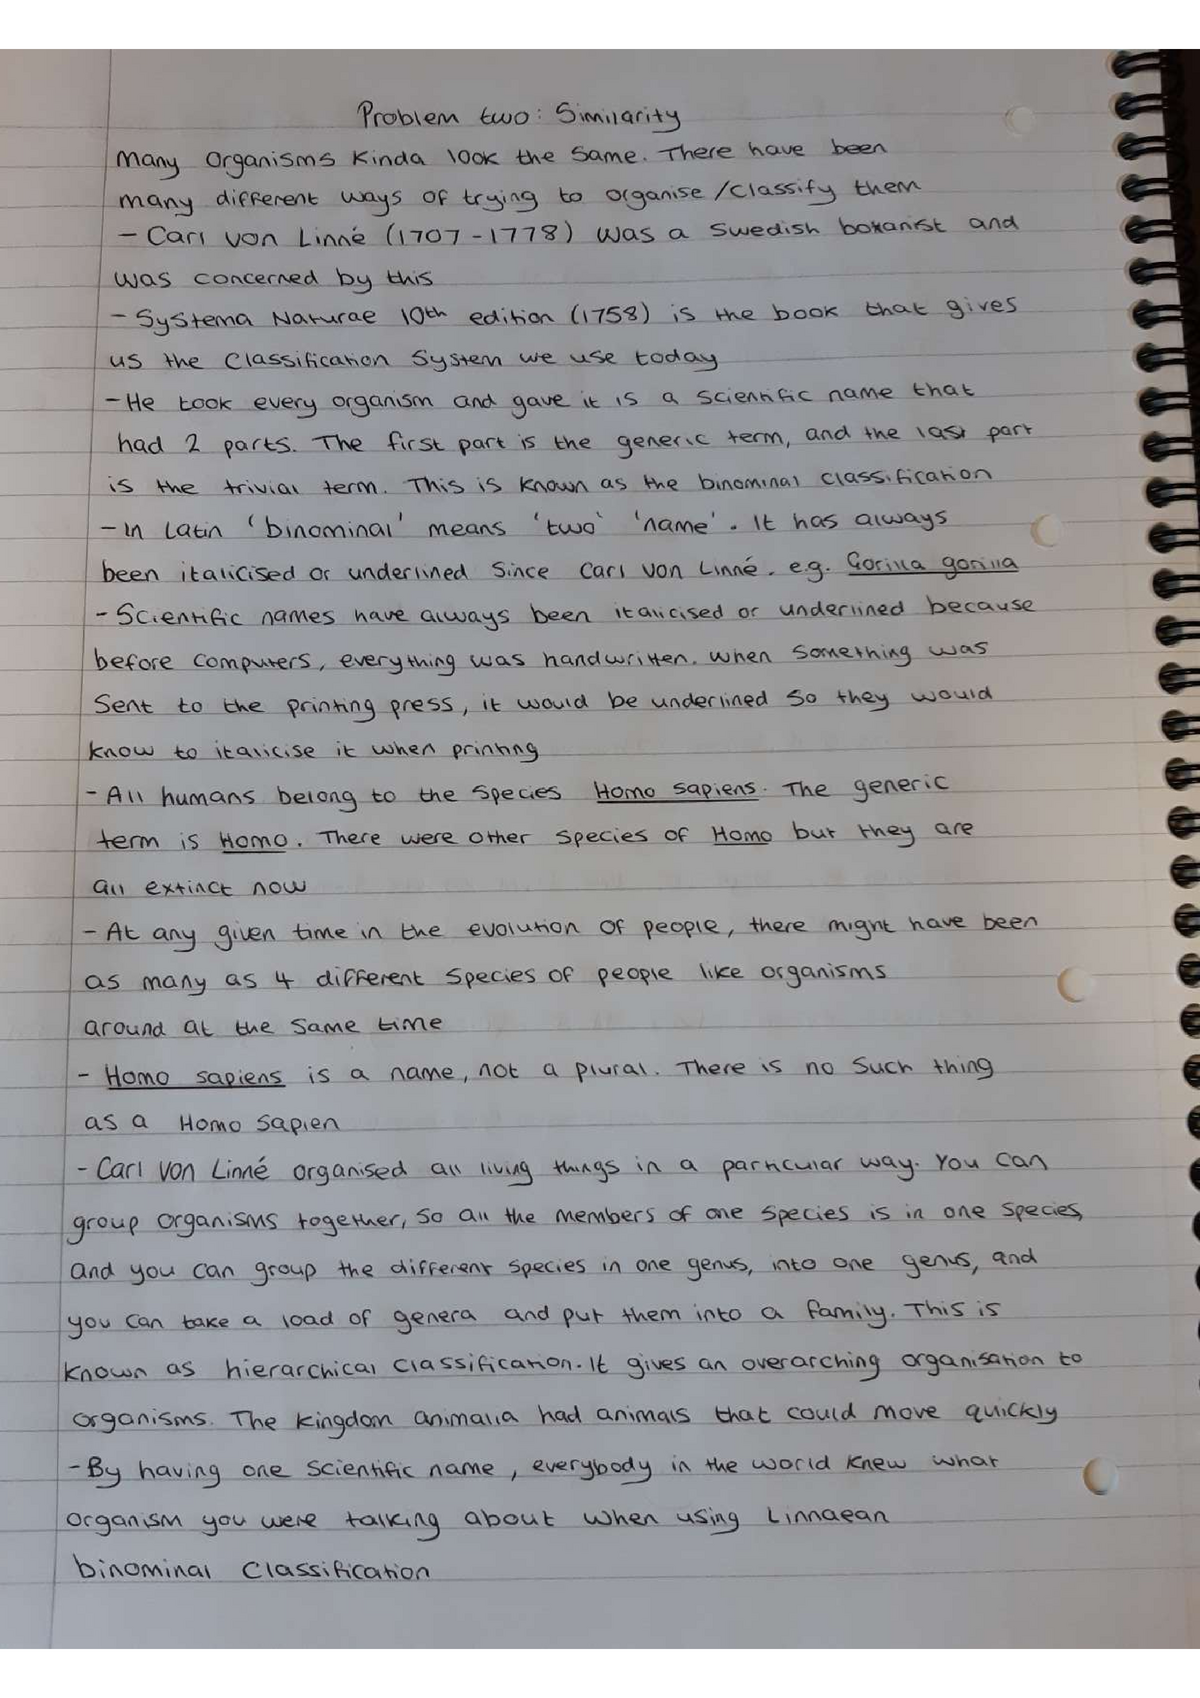 Problem two: Similarity
Many organisms kinda look the same. There have been
many different ways of trying to organise/classify them
- Carl von Linné (1707-1778) was a Swedish botanist and
was concerned by this
- Systema Naturae 10th edition (1758) is the book that gives
us the classification system we use today
- He took every organism and gave it is a scientific name that
had 2 parts. The first part is the generic term, and the last part
is the trivial term. This is known as the binominal classification
- In Latin 'binominal' means 'two' 'name'. It has always
been italicised or underlined since Carl von Linné. e.g. Gorilla gorilla
- Scientific names have always been italicised or underlined because
before computers, everything was handwritten. When something was
sent to the printing press, it would be underlined so they would
know to italicise it when printing
- All humans belong to the species Homo sapiens. The generic
term is Homo. There were other species of Homo but they are
all extinct now
- At any given time in the evolution of people, there might have been
as many as 4 different species of people like organisms
around at the same time
- Homo sapiens is a name, not a plural. There is no such thing
as a Homo sapien
- Carl von Linné organised all living things in a particular way. You can
group organisms together, so all the members of one species is in one species,
and you can group the different species in one genus, into one genus, and
you can take a load of genera and put them into a family. This is
known as hierarchical classification. It gives an overarching organisation to
organisms. The kingdom animalia had animals that could move quickly
- By having one scientific name, everybody in the world knew what
organism you were talking about when using Linnaean
binominal classification